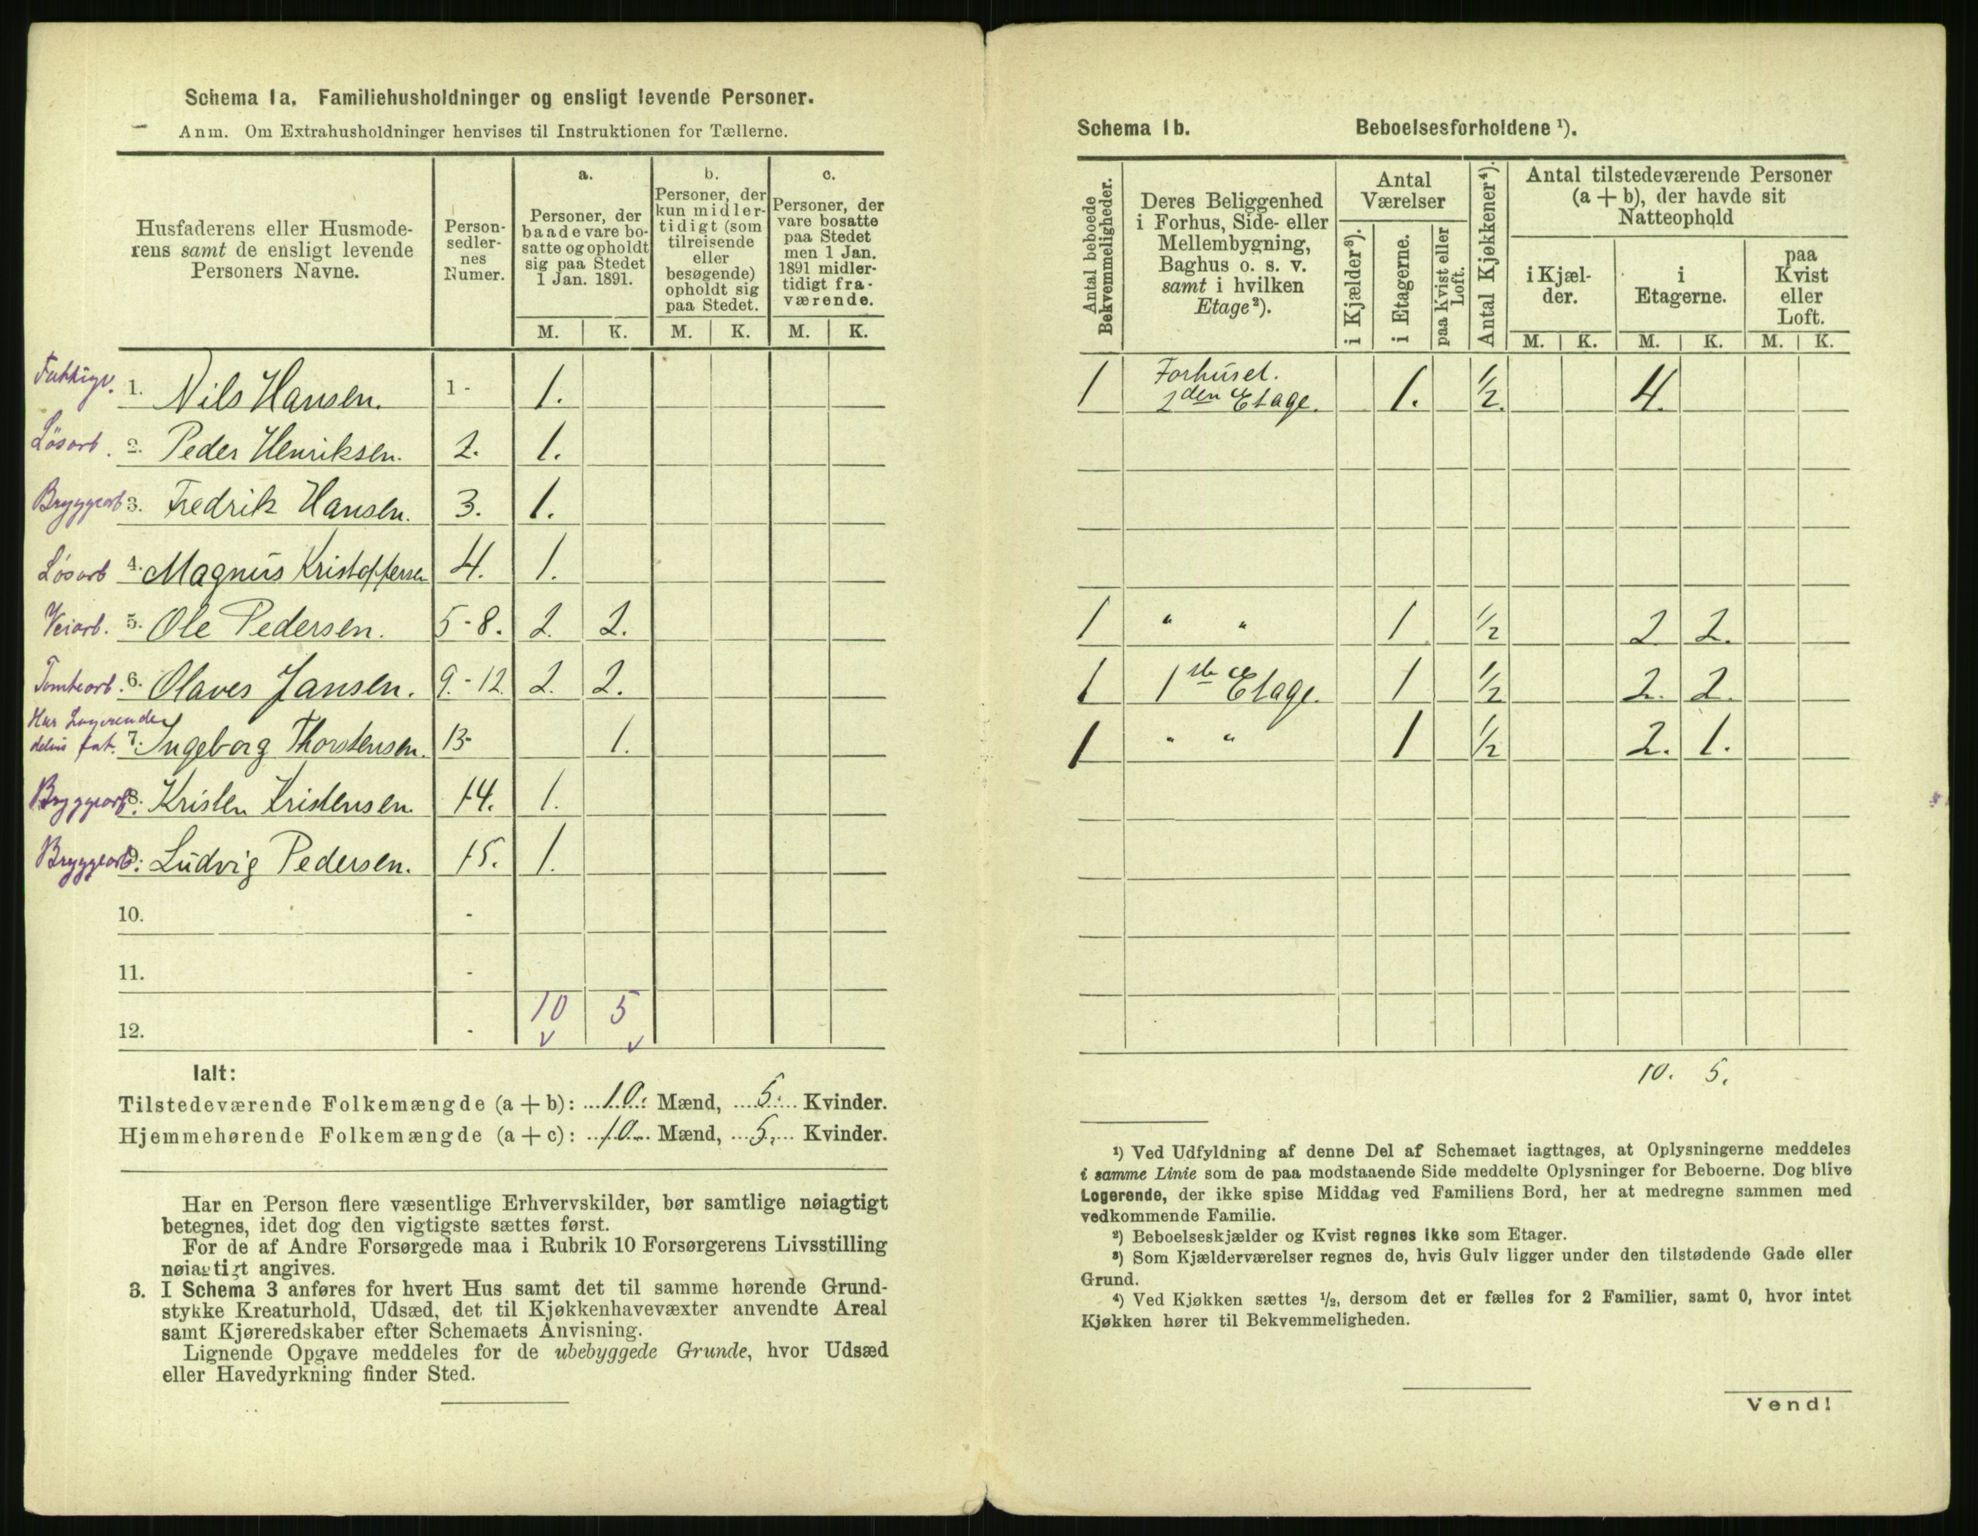 Schema 1a. Familiehusholdninger og ensligt levende Personer.
Anm. Om Extrahusholdninger henvises til Instruktionen for Tællerne.
Husfaderens eller Husmode-
rens samt de ensligt levende
Personers Navne.
Person-
sedler-
nes
Numer.
a.
Personer, der
baade vare bo-
satte og opholdt
sig paa Stedet
1 Jan. 1891.
b.
Personer, der
kun midler-
tidigt (som
tilreisende
eller
besøgende)
opholdt sig
paa Stedet.
c.
Personer, der
vare bosatte
paa Stedet
men 1 Jan.
1891 midler-
tidigt fra-
værende.
M. K. M. K. M. K.
1. Nils Hansen. 1- 1.
Løsarb. 2. Peder Henriksen. 2. 1.
Bryggearb 3. Fredrik Hansen. 3. 1.
Løsarb 4. Magnus Kristoffersen 4. 1.
Veiarb. 5. Ole Pedersen. 5-8. 2. 2.
Tomtearb. 6. Olaves Jansen. 9.-12. 2. 2.
Har Logerende
delvis fat. 7. Ingeborg Thorstensen. 13- 1.
Bryggearb. 8. Kristen Kristensen. 14. 1.
Bryggearb. 9. Ludvig Pedersen. 15. 1.
10. -
11. -
10 5
12. -
Ialt:
Tilstedeværende Folkemængde (a + b): 10. Mænd, 5. Kvinder.
Hjemmehørende Folkemængde (a + c): 10. Mænd, 5. Kvinder.
Har en Person flere væsentlige Erhvervskilder, bør samtlige nøiagtigt
betegnes, idet dog den vigtigste sættes først.
For de af Andre Forsørgede maa i Rubrik 10 Forsørgerens Livsstilling
nøiagtigt angives.
3. I Schema 3 anføres for hvert Hus samt det til samme hørende Grund-
stykke Kreaturhold, Udsæd, det til Kjøkkenhavevæxter anvendte Areal
samt Kjøreredskaber efter Schemaets Anvisning.
Lignende Opgave meddeles for de ubebyggede Grunde, hvor Udsæd
eller Havedyrkning finder Sted.
Schema 1b. Beboelsesforholdene ¹).
Antal beboede
Bekvemmeligheder.
Deres Beliggenhed
i Forhus, Side- eller
Mellembygning,
Baghus o. s. v.
samt i hvilken
Etage²).
Antal
Værelser
i Kjælder³).
i Etagerne.
paa Kvist eller
Loft.
Antal Kjøkkener⁴).
Antal tilstedeværende Personer
(a + b), der havde sit
Natteophold
i Kjæl-
der.
i
Etagerne.
paa
Kvist
eller
Loft.
M. K. M. K. M. K.
1 Forhuset.
2den Etage. 1. 1/2 4.
1 " " 1 1/2 2 2.
1 1ste Etage. 1 1/2 2. 2.
1 " " 1 1/2 2. 1.
10. 5.
¹) Ved Udfyldning af denne Del af Schemaet iagttages, at Oplysningerne meddeles
i samme Linie som de paa modstaaende Side meddelte Oplysninger for Beboerne. Dog blive
Logerende, der ikke spise Middag ved Familiens Bord, her at medregne sammen med
vedkommende Familie.
²) Beboelseskjælder og Kvist regnes ikke som Etager.
³) Som Kjælderværelser regnes de, hvis Gulv ligger under den tilstødende Gade eller
Grund.
⁴) Ved Kjøkken sættes 1/2, dersom det er fælles for 2 Familier, samt 0, hvor intet
Kjøkken hører til Bekvemmeligheden.
Vend!